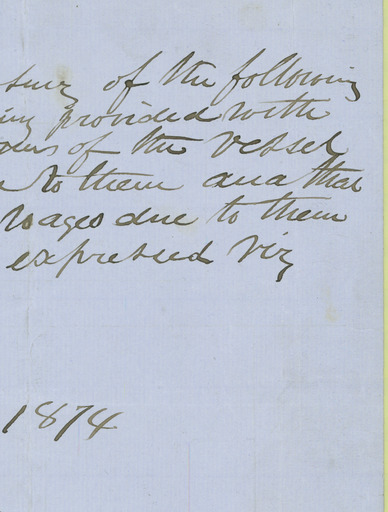 of the following
provided with
of the vessel
to them and that
wages due to them
expressed viz
1874